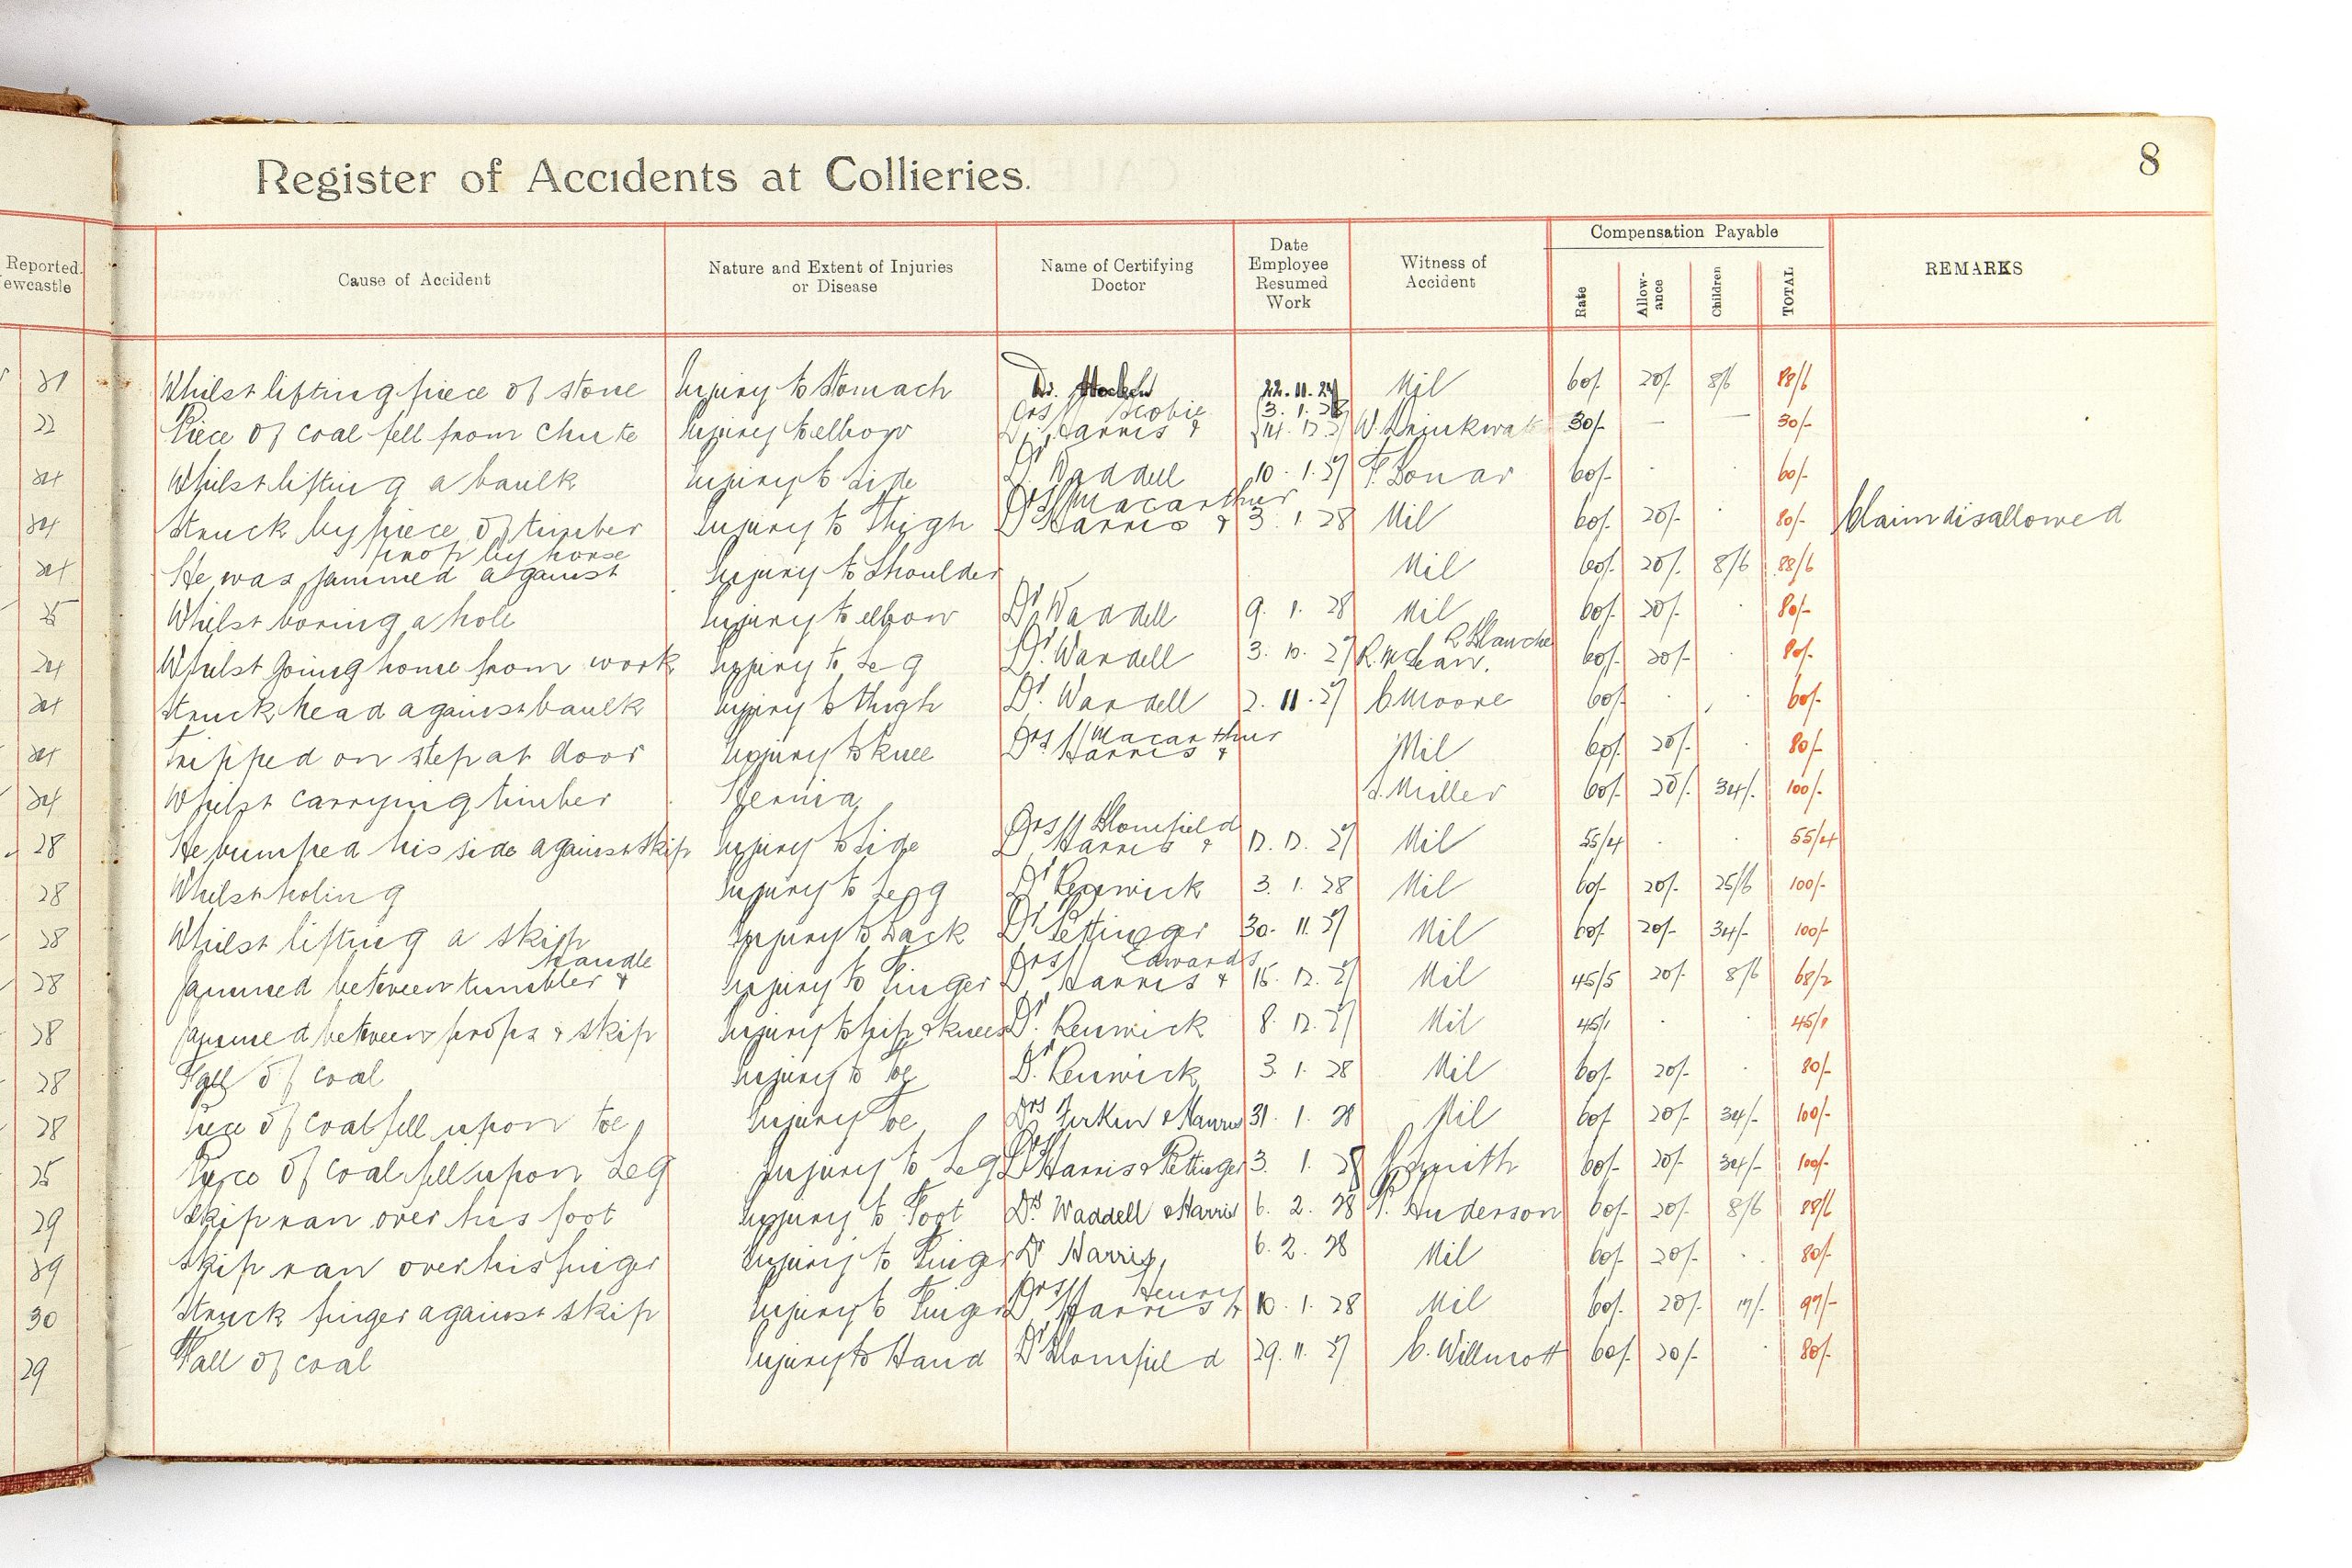 Register of Accidents at Collieries. 8
Reported. Cause of Accident Nature and Extent of Injuries or Disease Name of Certifying Doctor Date Employee Resumed Work Witness of Accident Compensation Payable Rate Allow-ance Children TOTAL REMARKS
ewcastle
21 Whilst lifting piece of stone Injury to Stomach Dr. 22.11.27 Nil 60/- 20/- 8/6 88/6
22 Piece of coal fell from Chute Injury to elbow Drs Harris & Scobie W. Drinkwater 30/- — — 30/-
24 Whilst lifting a baulk Injury to Side Dr Waddell 10.1.27 F. Bonar 60/- 60/-
24 Struck by piece of timber Injury to Thigh Drs Harris & Macarthur 3.1.28 Nil 60/- 20/- 80/- Claim disallowed
24 He was jammed against prop by horse Injury to Shoulder Nil 60/- 20/- 8/6 88/6
25 Whilst boring a hole Injury to elbow Dr Waddell 9.1.28 Nil 60/- 20/- 80/-
24 Whilst Going home from work Injury to Leg Dr. Waddell 3.10.27 R. McLean. R Blanche 60/- 20/- 80/-
24 Struck head against baulk Injury to thigh Dr. Waddell 2.11.27 C Moore 60/- 60/-
24 Tripped on step at door Injury to knee Drs Harris & Macarthur Nil 60/- 20/- 80/-
24 Whilst carrying timber Hernia Miller 60/- 20/- 34/- 100/-
28 He bumped his side against skip Injury to Side Drs Harris & Blomfield 12.12.27 Nil 55/4 55/4
28 Whilst holing Injury to Leg Dr Renwick 3.1.28 Nil 60/- 20/- 25/6 100/-
28 Whilst lifting a skip Injury to Back Dr Pettinger 30.11.27 Nil 60/- 20/- 34/- 100/-
28 Jammed between tumbler & handle Injury to Finger Drs Harris & Edwards 15.12.27 Nil 45/5 20/- 8/6 68/2
28 Jammed between props & skip Injury to hip & knees Dr. Renwick 8.12.27 Nil 45/1 45/1
28 Fall of coal Injury to Toe Dr. Renwick 3.1.28 Nil 60/- 20/- 80/-
28 Piece of coal fell upon toe Injury Toe Drs & Harris 31.1.28 Nil 60/- 20/- 34/- 100/-
25 Piece of coal fell upon Leg Injury to Leg Drs Harris & Pettinger 3.1.28 J Smith 60/- 20/- 34/- 100/-
29 Skip ran over his foot Injury to Foot Drs Waddell & Harris 6.2.28 Anderson 60/- 20/- 8/6 88/6
29 Skip ran over his finger Injury to Finger Dr Harris, 6.2.28 Nil 60/- 20/- 80/-
30 Struck finger against skip Injury to Finger Drs Harris & Henry 10.1.28 Nil 60/- 20/- 17/- 97/-
29 Fall of coal Injury to Hand Dr Blomfield 29.11.27 C. Willmott 60/- 20/- 80/-